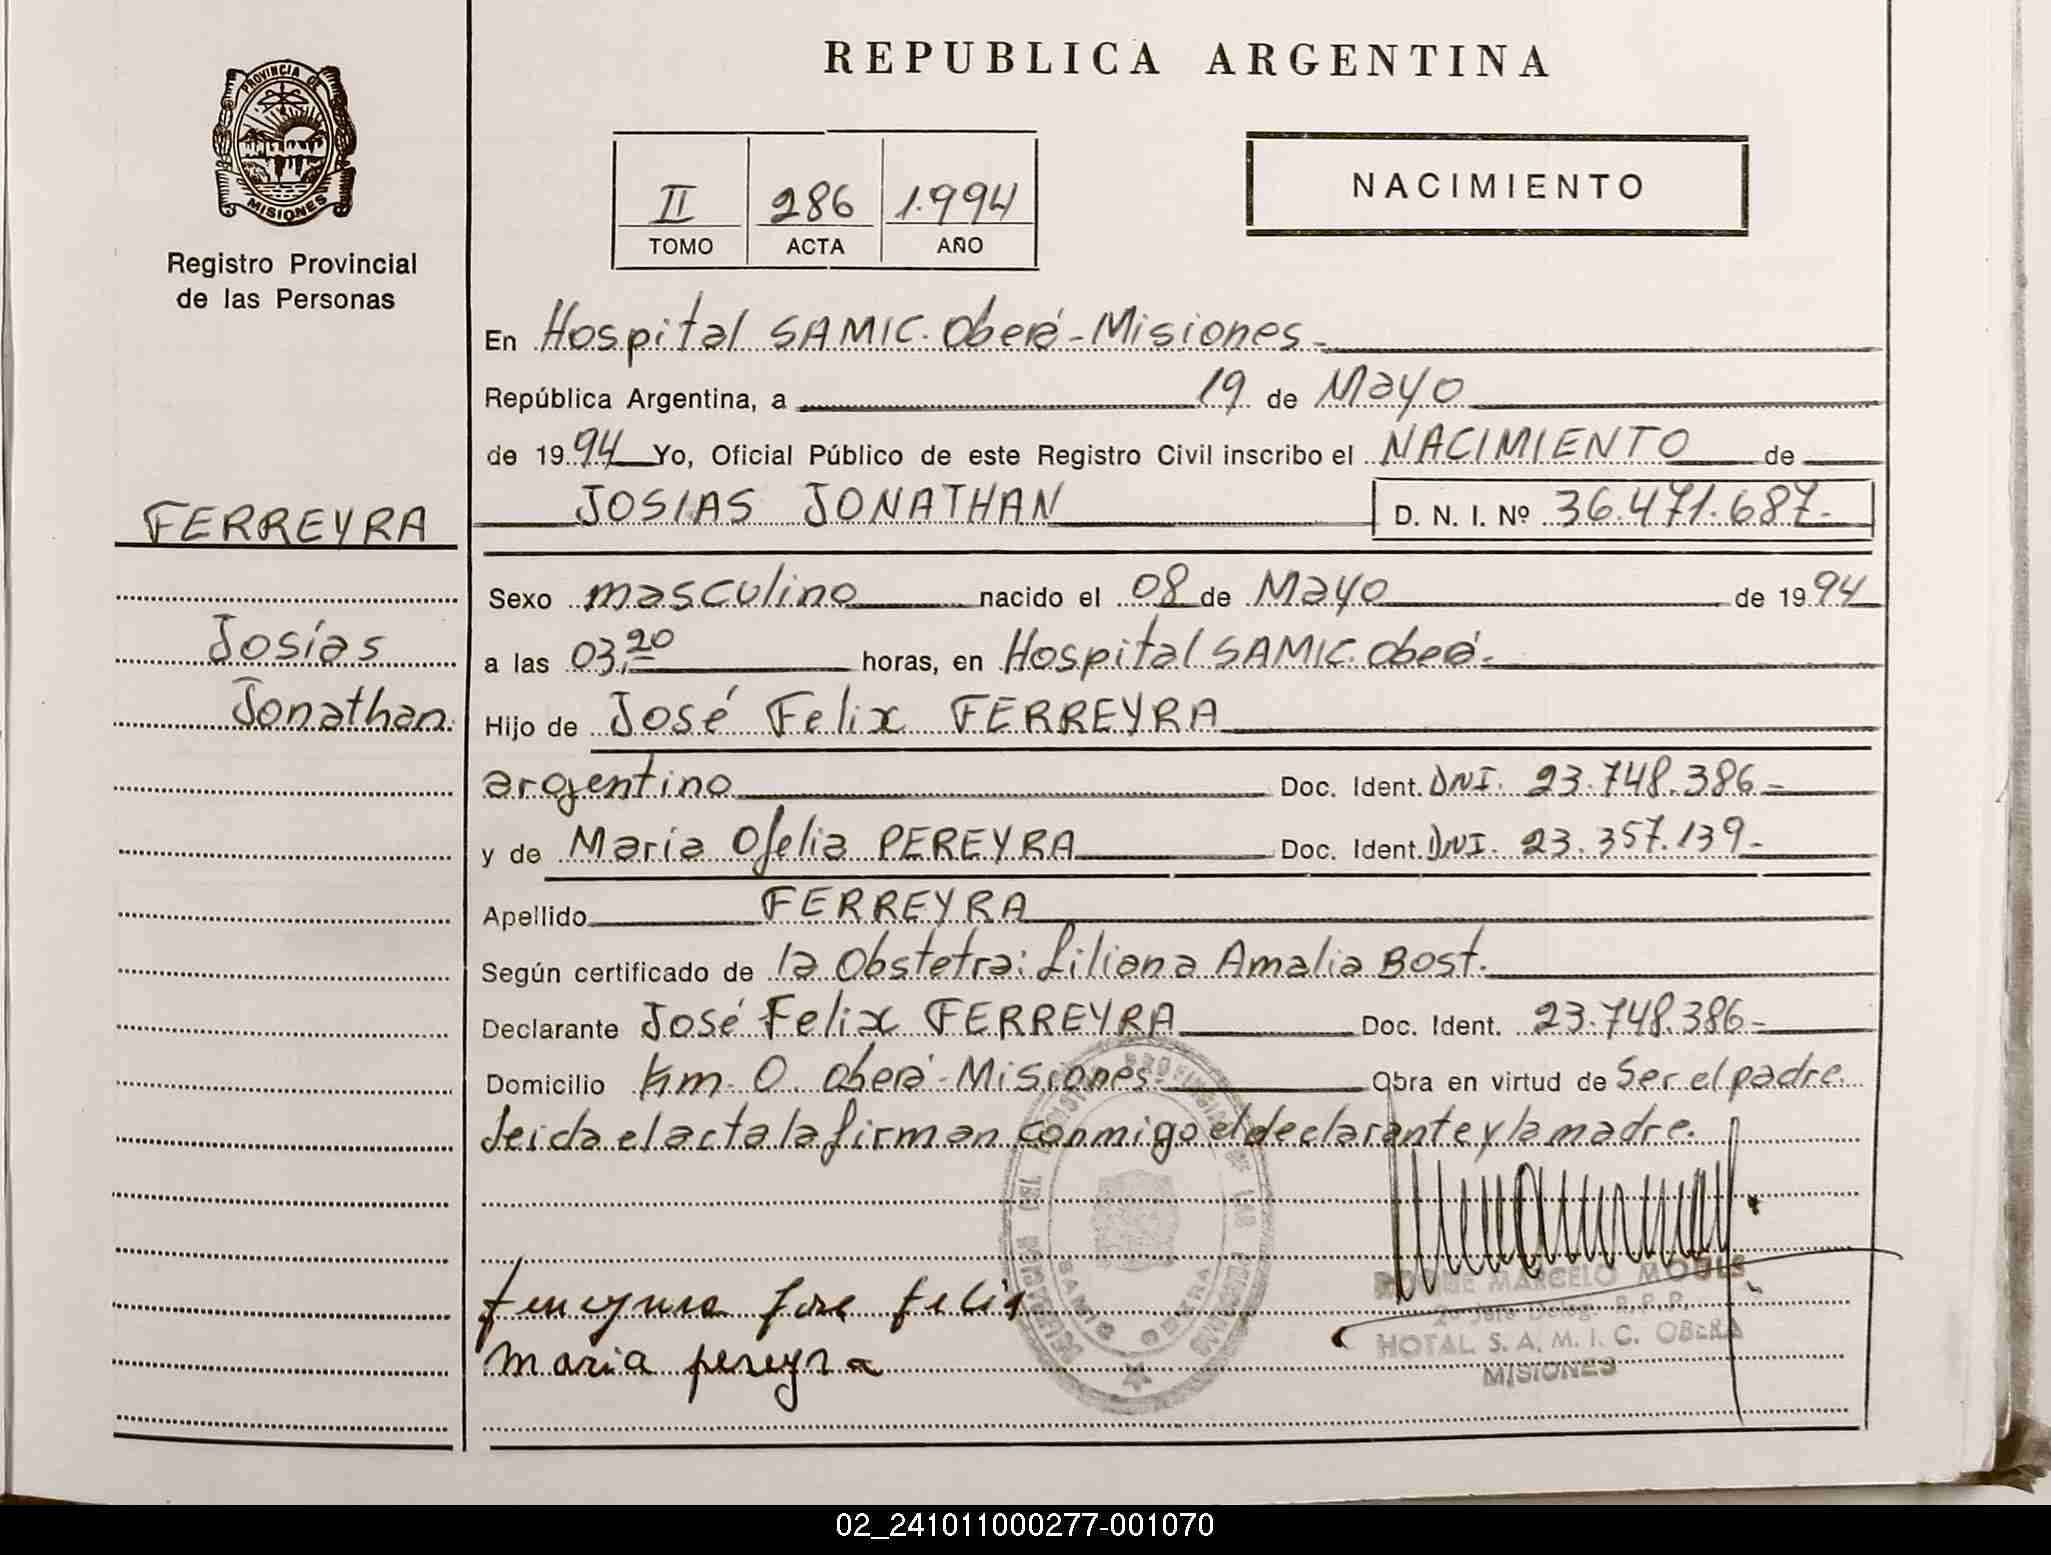 REPUBLICA ARGENTINA
PROVINCIA DE
MISIONES
Registro Provincial
de las Personas
II 286 1.994
TOMO ACTA AÑO
NACIMIENTO
En Hospital SAMIC. Oberá-Misiones-
República Argentina, a 19 de Mayo
de 1994 Yo, Oficial Público de este Registro Civil inscribo el NACIMIENTO de
FERREYRA
Josías
Jonathan
JOSIAS JONATHAN D. N. I. Nº 36.471.687-
Sexo masculino nacido el 08 de Mayo de 1994
a las 03,20 horas, en Hospital SAMIC. Oberá-
Hijo de José Felix FERREYRA
argentino Doc. Ident. DNI. 23.748.386-
y de María Ofelia PEREYRA Doc. Ident. DNI. 23.357.139-
Apellido FERREYRA
Según certificado de la Obstetra: Liliana Amalia Bost.
Declarante José Felix FERREYRA Doc. Ident. 23.748.386-
Domicilio Km. 0. Oberá-Misiones- Obra en virtud de Ser el padre.
Leida el acta la firman conmigo el declarante y la madre.
Ferreyra Jose Felix
maria pereyra
REGISTRO PROVINCIAL DE LAS PERSONAS
SAMIC OBERA
MISIONES
ROQUE MARCELO
R.P.P.
HOTAL S. A. M. I. C. OBERA
MISIONES
02_241011000277-001070